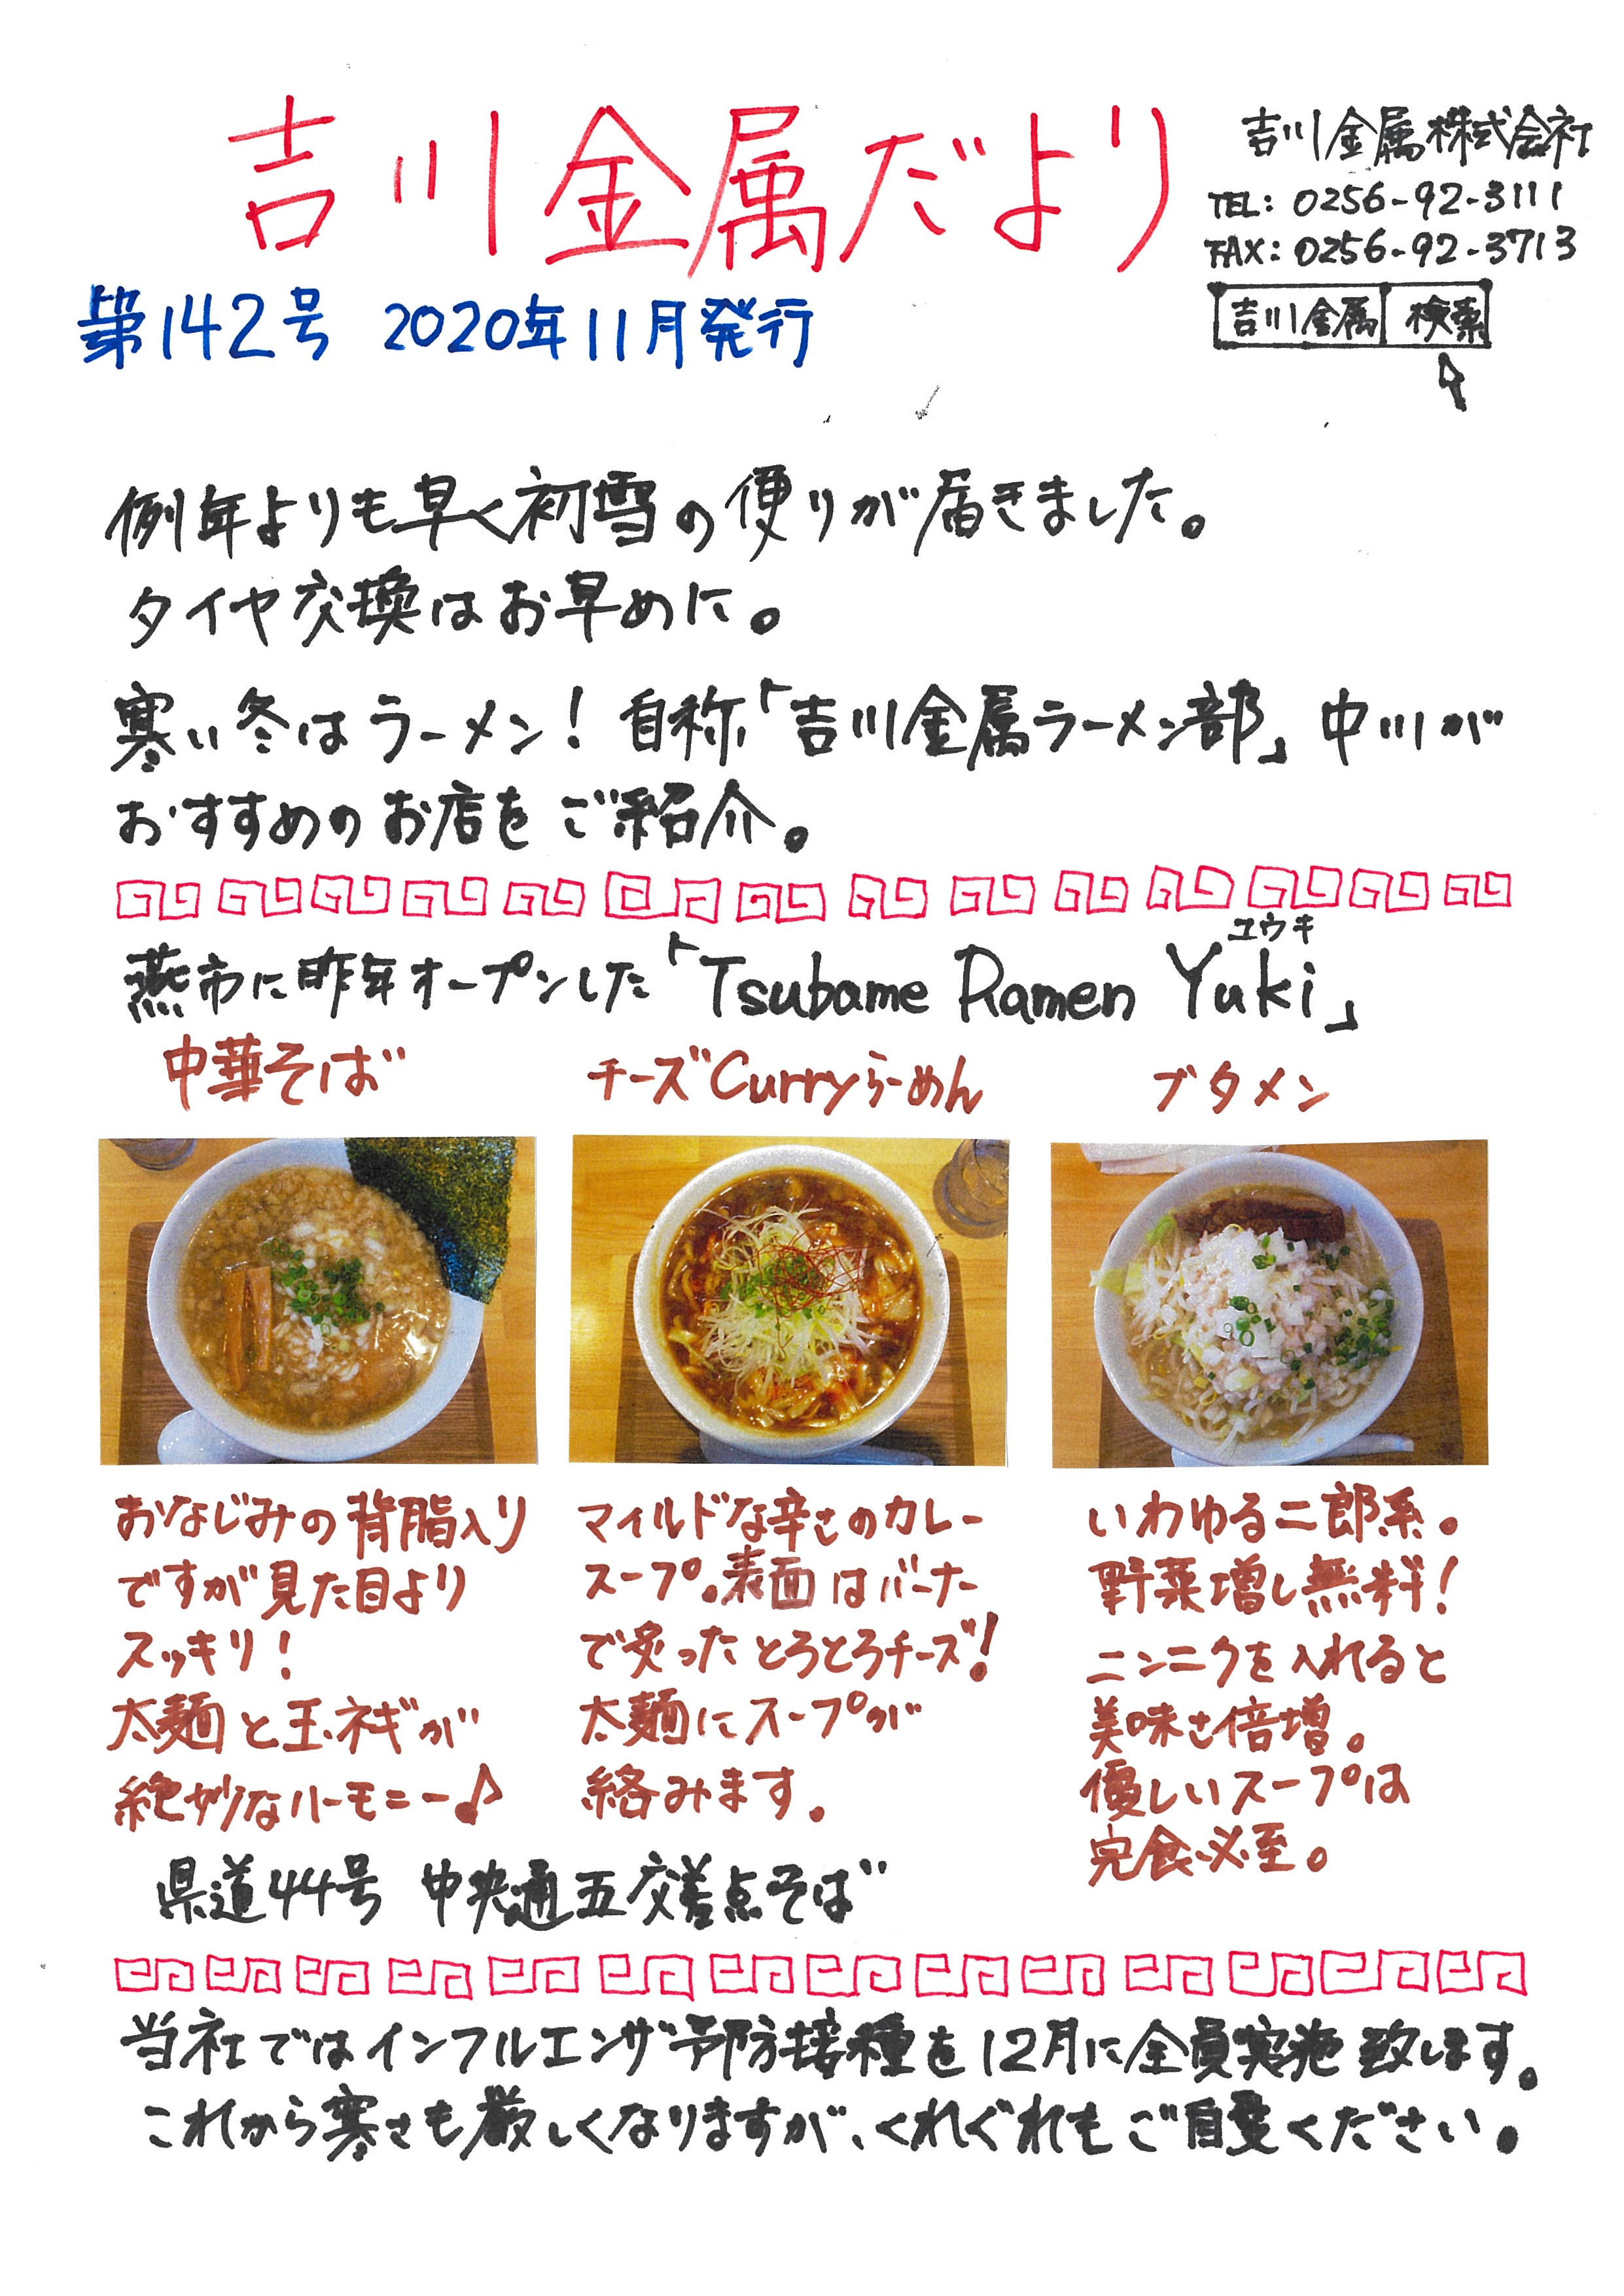 吉川金属だより
吉川金属株式会社
TEL: 0256-92-3111
FAX: 0256-92-3713
吉川金属 検索
第142号 2020年11月発行
例年よりも早く初雪の便りが届きました。
タイヤ交換はお早めに。
寒い冬はラーメン！自称「吉川金属ラーメン部」中川が
おすすめのお店をご紹介。
ユウキ
燕市に昨年オープンした「Tsubame Ramen Yuki」
中華そば
チーズCurryらーめん
ブタメン
おなじみの背脂入り
ですが見た目より
スッキリ！
太麺と玉ネギが
絶妙なハーモニー♪
マイルドな辛さのカレー
スープ。表面はバーナー
で炙ったとろとろチーズ！
太麺にスープが
絡みます。
いわゆる二郎系。
野菜増し無料！
ニンニクを入れると
美味さ倍増。
優しいスープは
完食必至。
県道44号 中央通五交差点そば
当社ではインフルエンザ予防接種を12月に全員実施致します。
これから寒さも厳しくなりますが、くれぐれもご自愛ください。